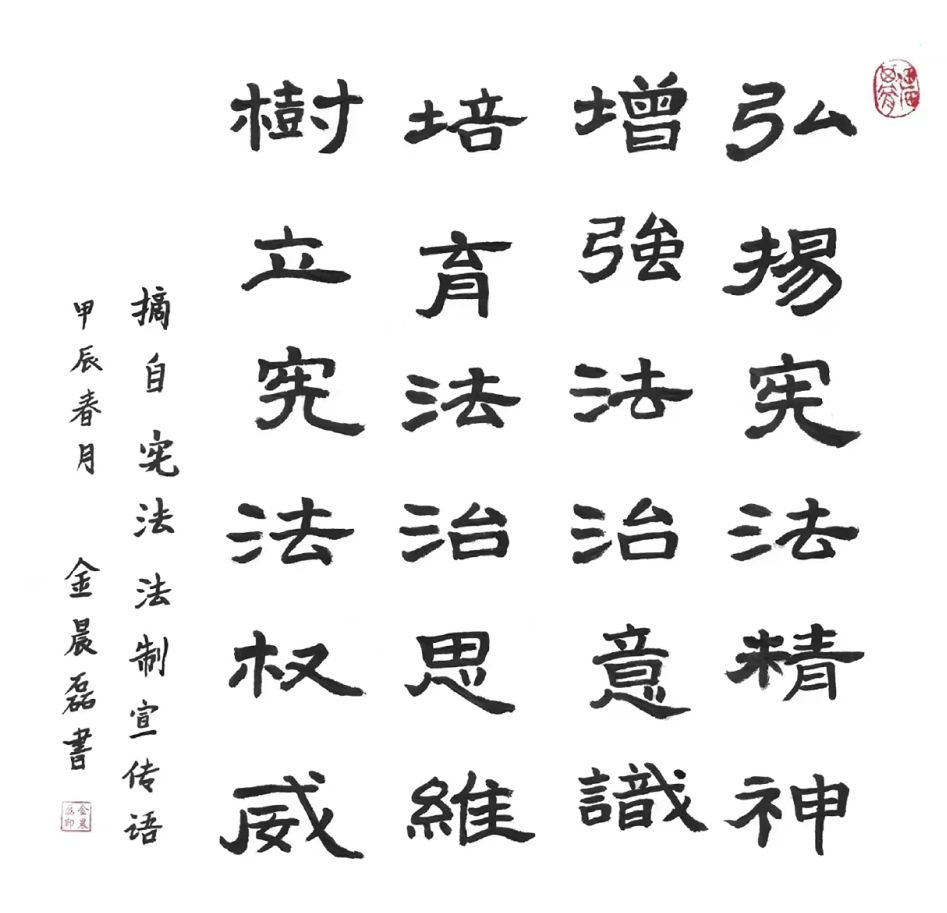 弘揚宪法精神
增強法治意識
培育法治思維
樹立宪法权威
摘自宪法法制宣传语
甲辰春月 金晨磊書
金晨磊印